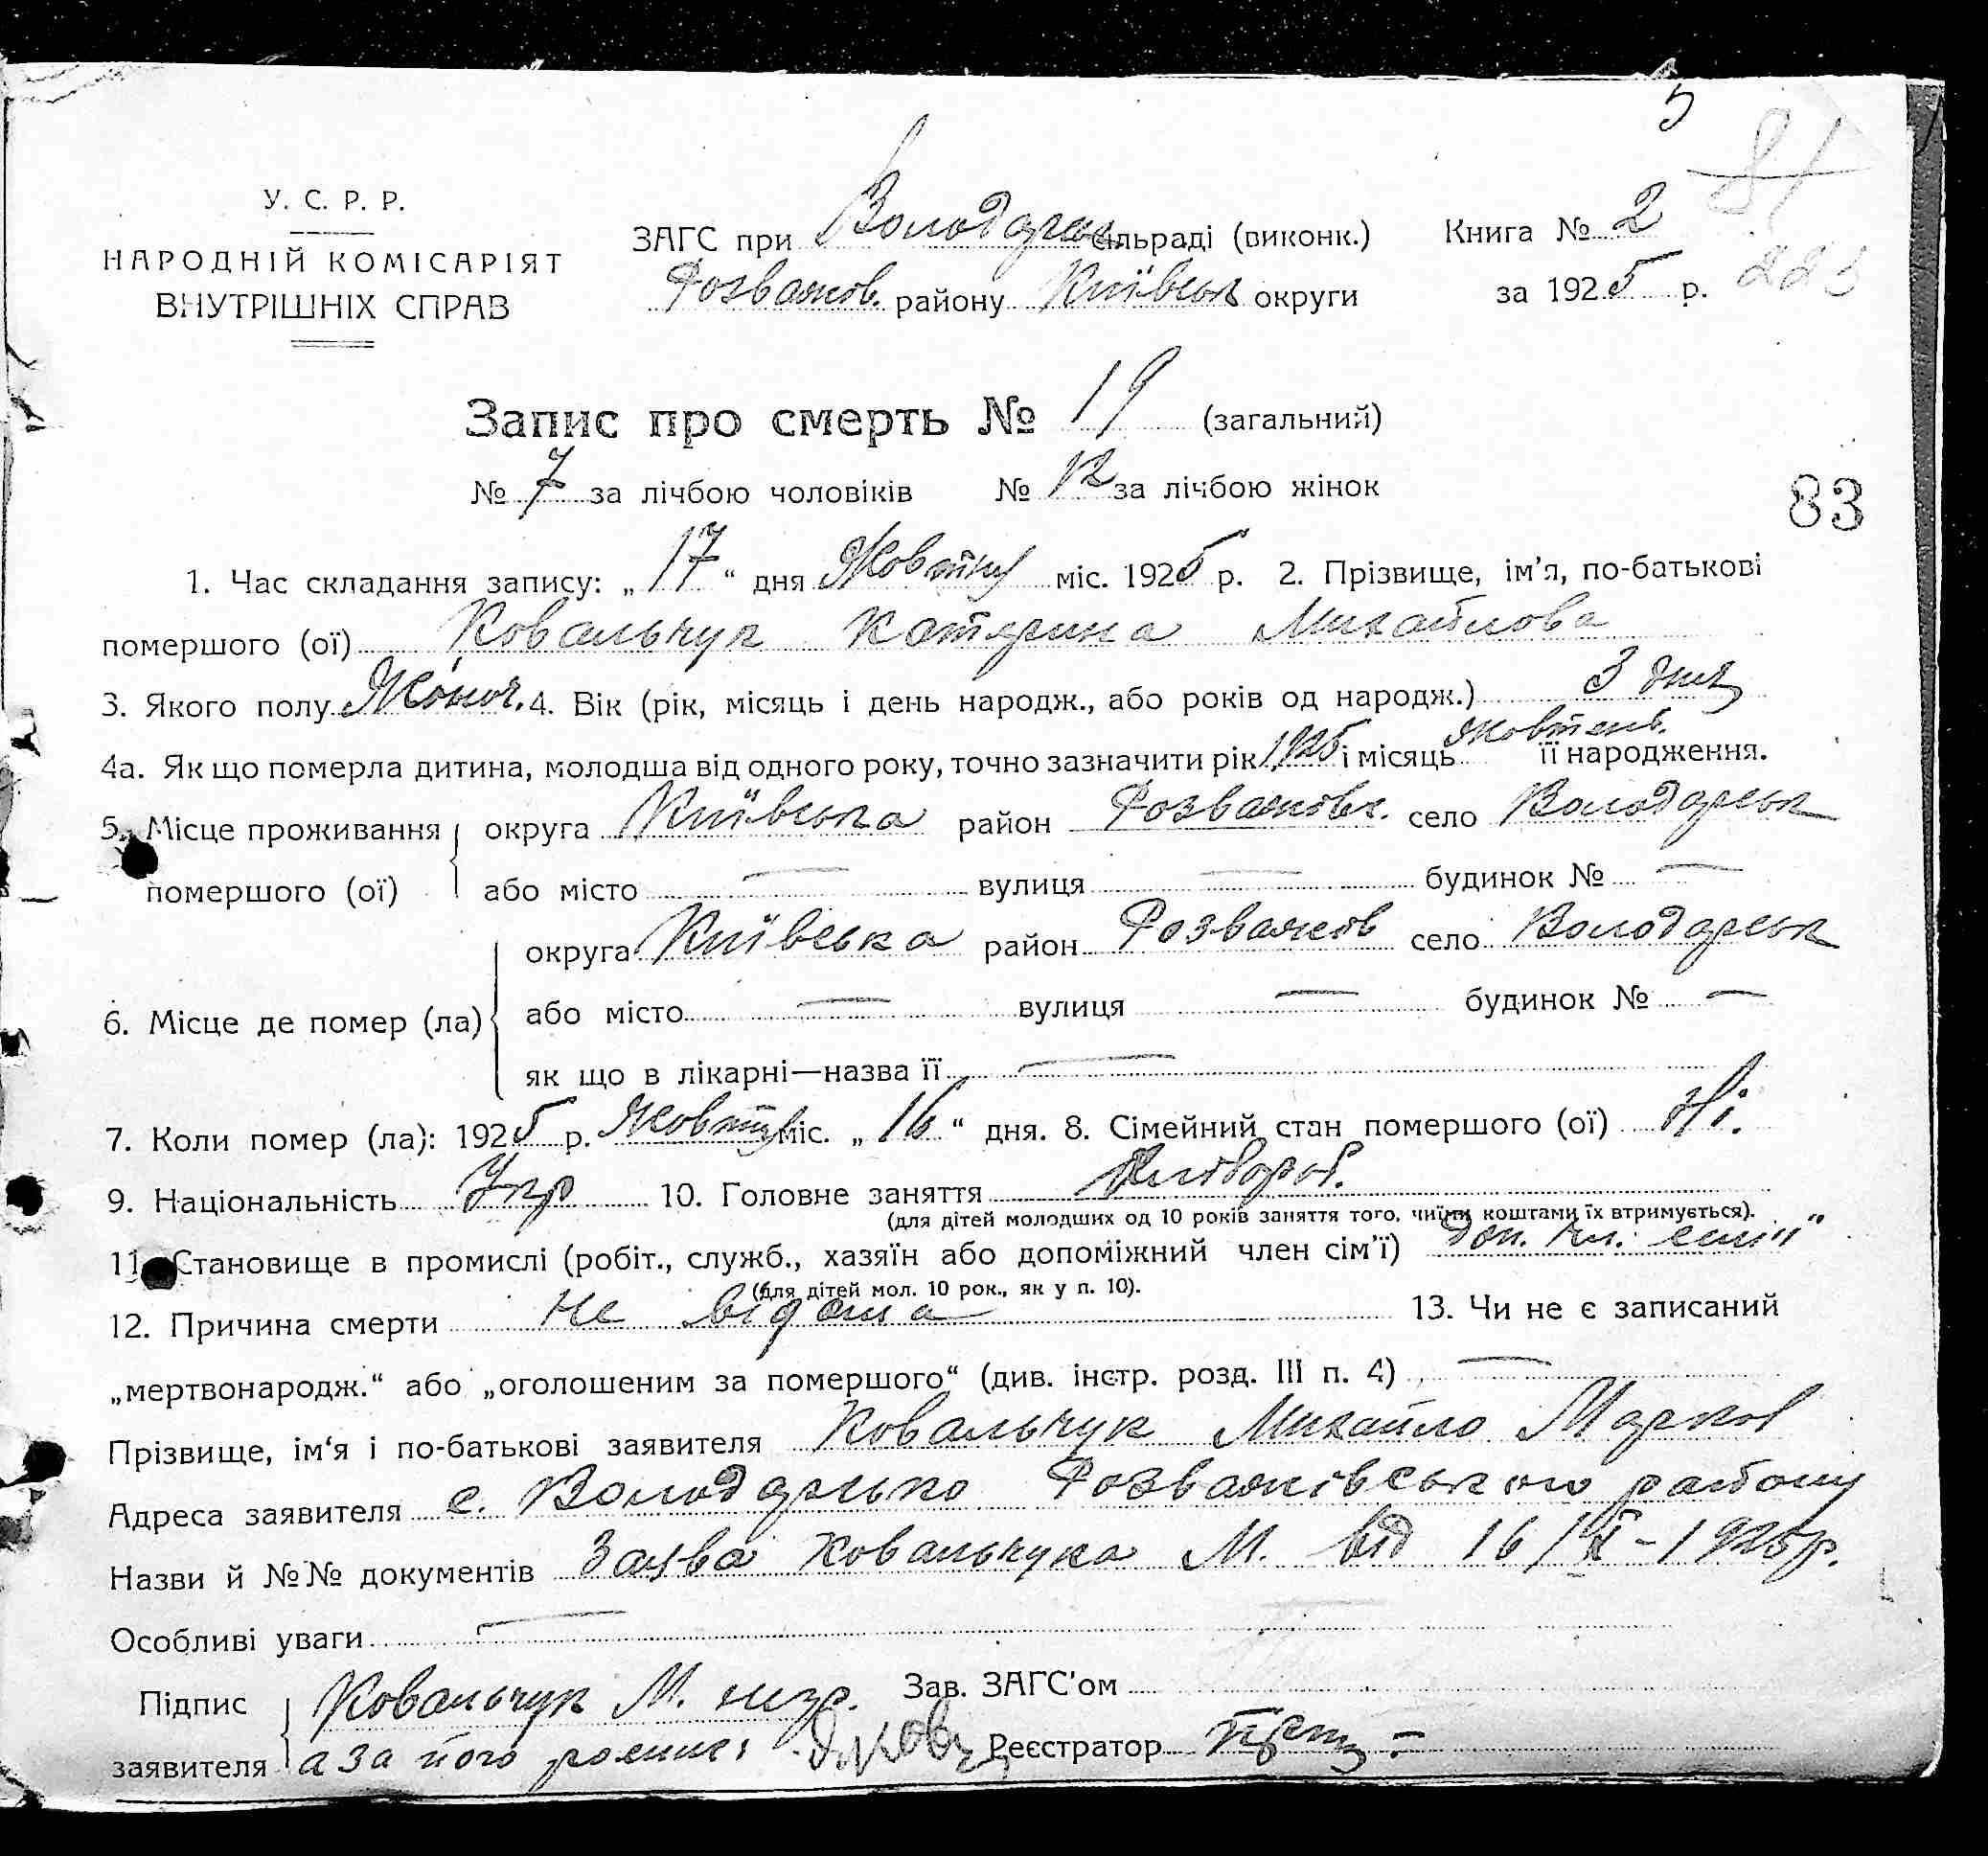 5
81
У. С. Р. Р.
НАРОДНІЙ КОМІСАРІЯТ
ВНУТРІШНІХ СПРАВ
ЗАГС при Володарськ. сільраді (виконк.) Книга № 2
Розважов. району Київськ округи за 1925 р. 223
Запис про смерть № 19 (загальний)
№ 7 за лічбою чоловіків № 12 за лічбою жінок
83
1. Час складання запису: „17“ дня Жовтня міс. 1925 р. 2. Прізвище, ім’я, по-батькові
помершого (ої) Ковальчук Катярина Михайлова
3. Якого полу Жіноч. 4. Вік (рік, місяць і день народж., або років од народж.) 3 дня
4а. Як що померла дитина, молодша від одного року, точно зазначити рік 1925 і місяць жовтень. її народження.
5. Місце проживання округа Київська район Розважовс. село Володарськ
помершого (ої) або місто — вулиця — будинок № —
округа Київська район Розважов село Володарськ
6. Місце де помер (ла) або місто — вулиця — будинок № —
як що в лікарні—назва її —
7. Коли помер (ла): 1925 р. Жовтня міс. „16“ дня. 8. Сімейний стан помершого (ої) Ні.
9. Національність Укр 10. Головне заняття Хлібороб.
(для дітей молодших од 10 років заняття того, чиїми коштами їх втримується).
11. Становище в промислі (робіт., служб., хазяїн або допоміжний член сім’ї) доп. чл. сімїї
(для дітей мол. 10 рок., як у п. 10).
12. Причина смерти Не відома 13. Чи не є записаний
„мертвонародж.“ або „оголошеним за помершого“ (див. інстр. розд. III п. 4) —
Прізвище, ім‘я і по-батькові заявителя Ковальчук Михайло Марков
Адреса заявителя с. Володарсько Розважівського району
Назви й №№ документів Заява Ковальчука М. від 16/X-1925р.
Особливі уваги —
Підпис Ковальчук М. незр. Зав. ЗАГС’ом
заявителя а за його розпис Реєстратор